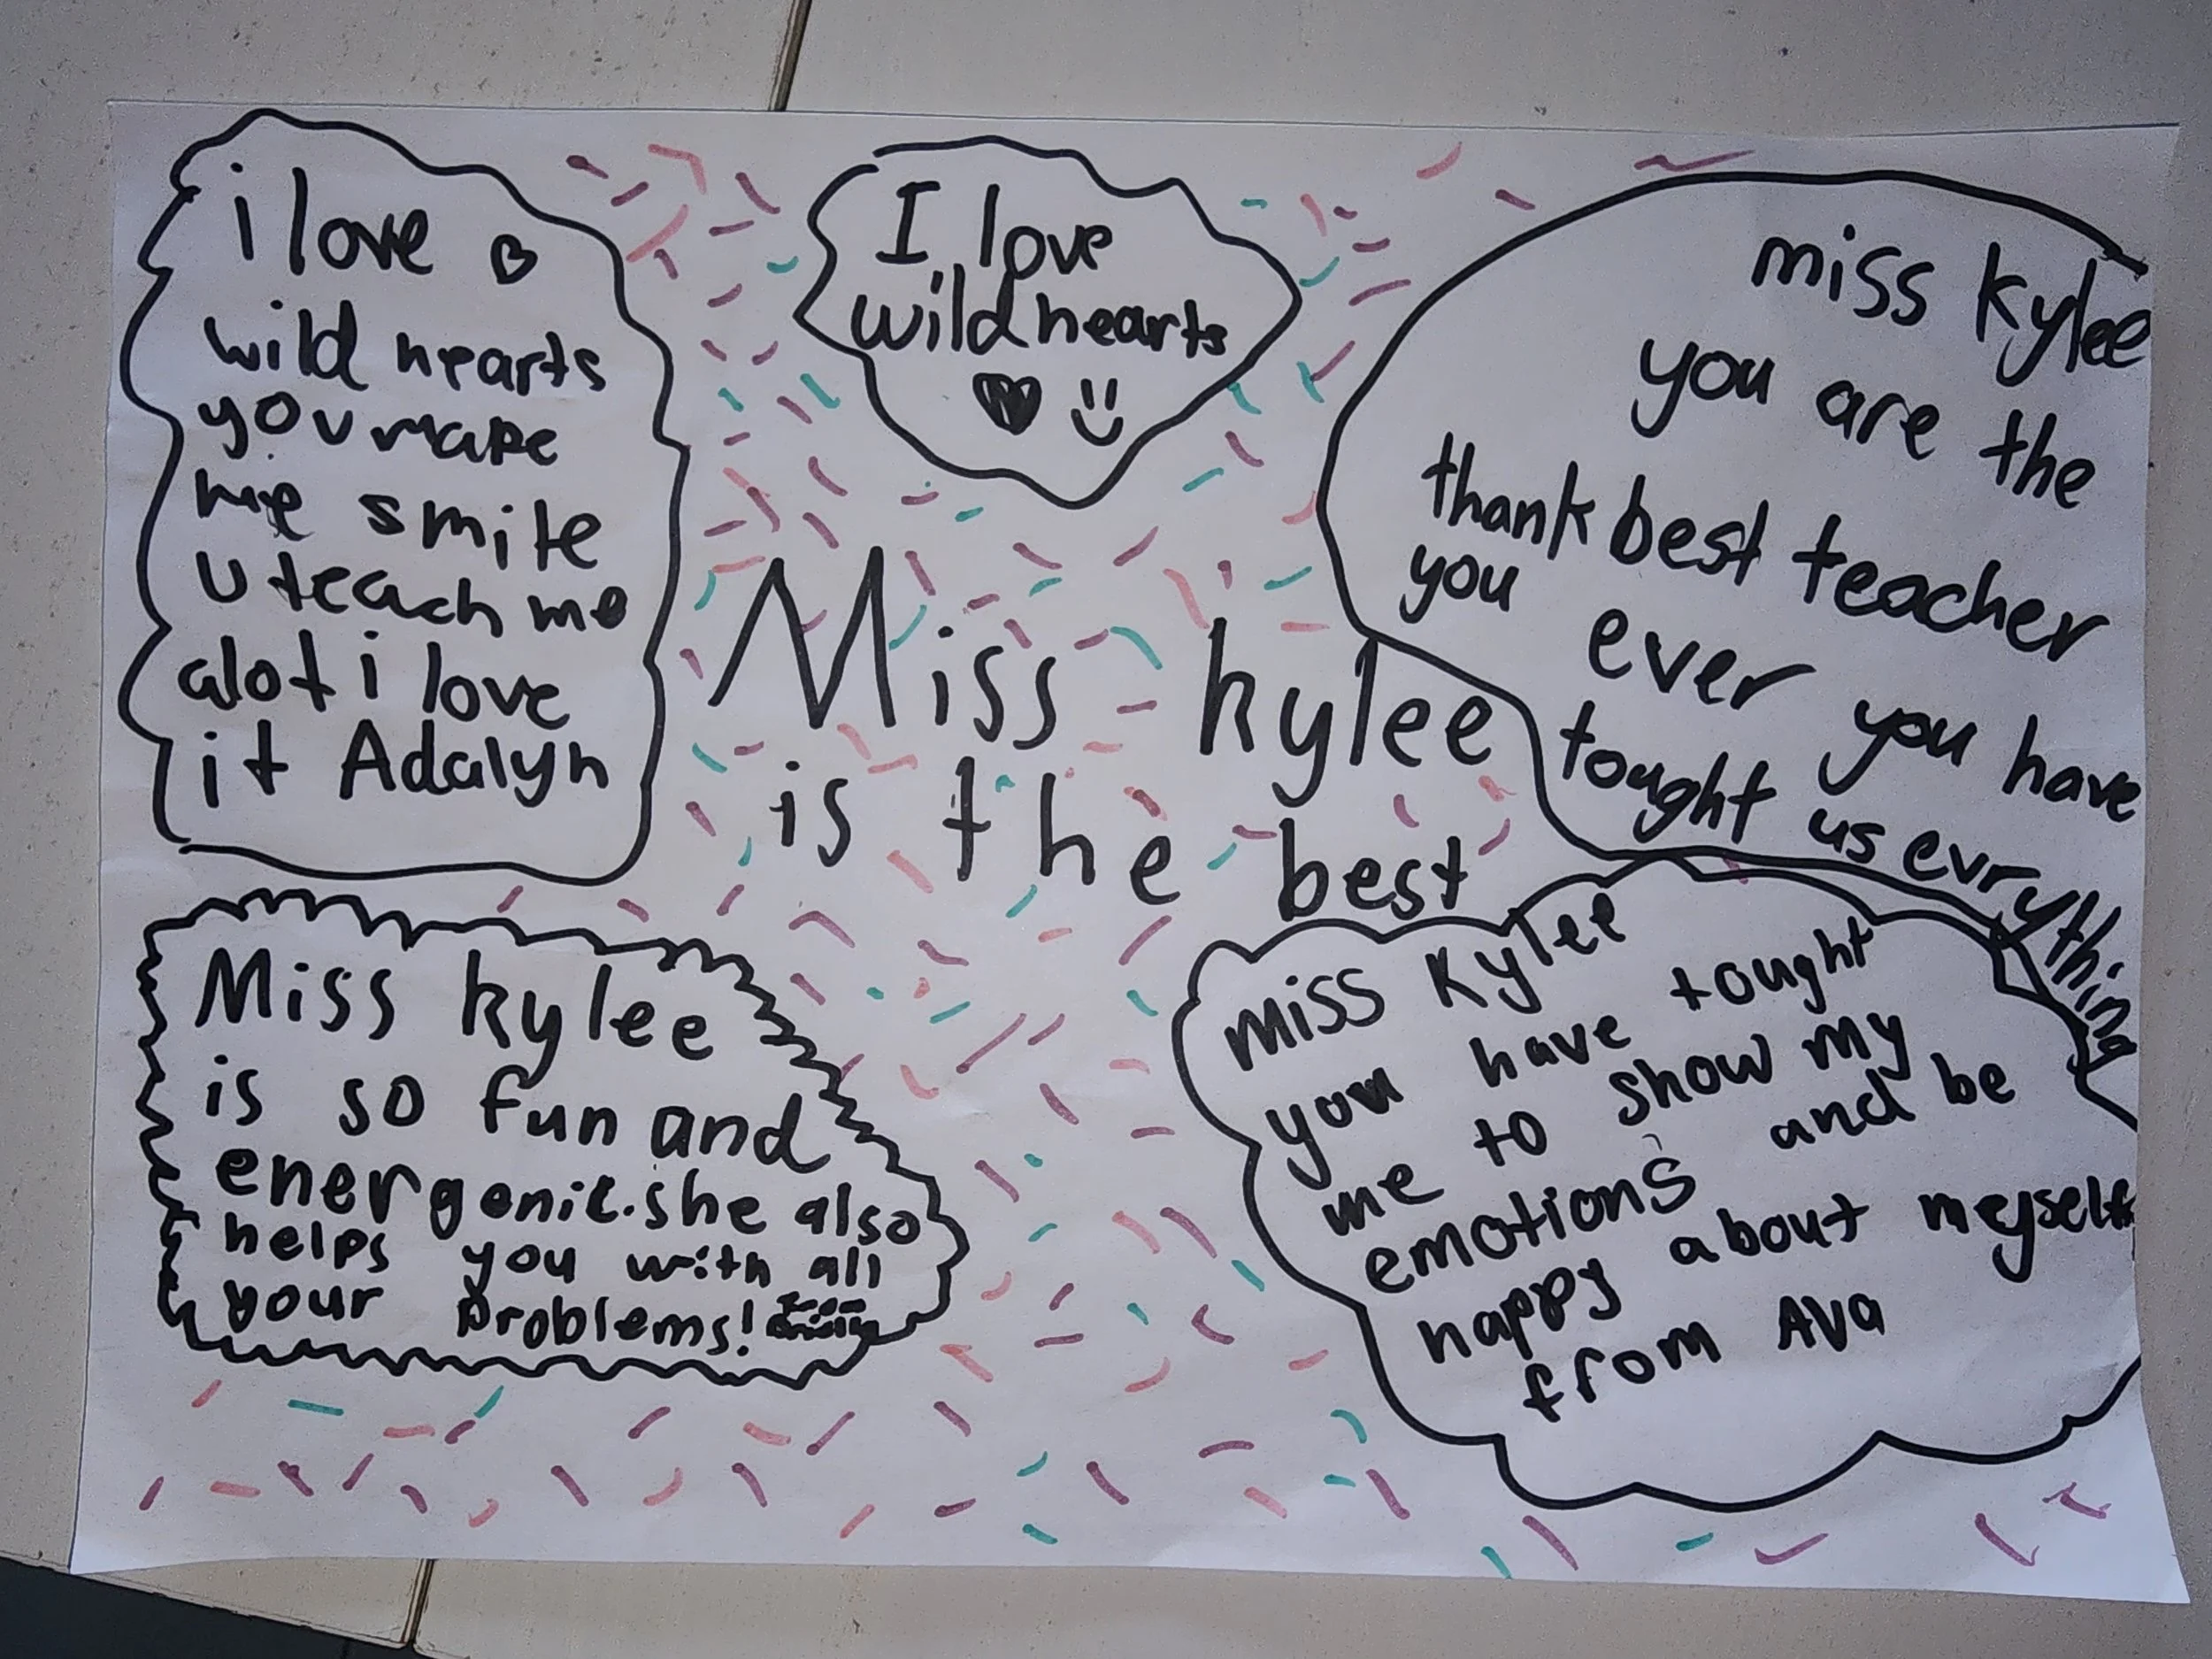 i love
wild hearts
you make
me smile
u teach me
alot i love
it Adalyn
I love
wild hearts
miss kylee
you are the
best teacher
ever you have
tought us evrything
thank
you
Miss kylee
is the best
Miss kylee
is so fun and
energenic. she also
helps you with all
your problems!
miss Kylee
you have tought
me to show my
emotions and be
happy about meyself
from Ava